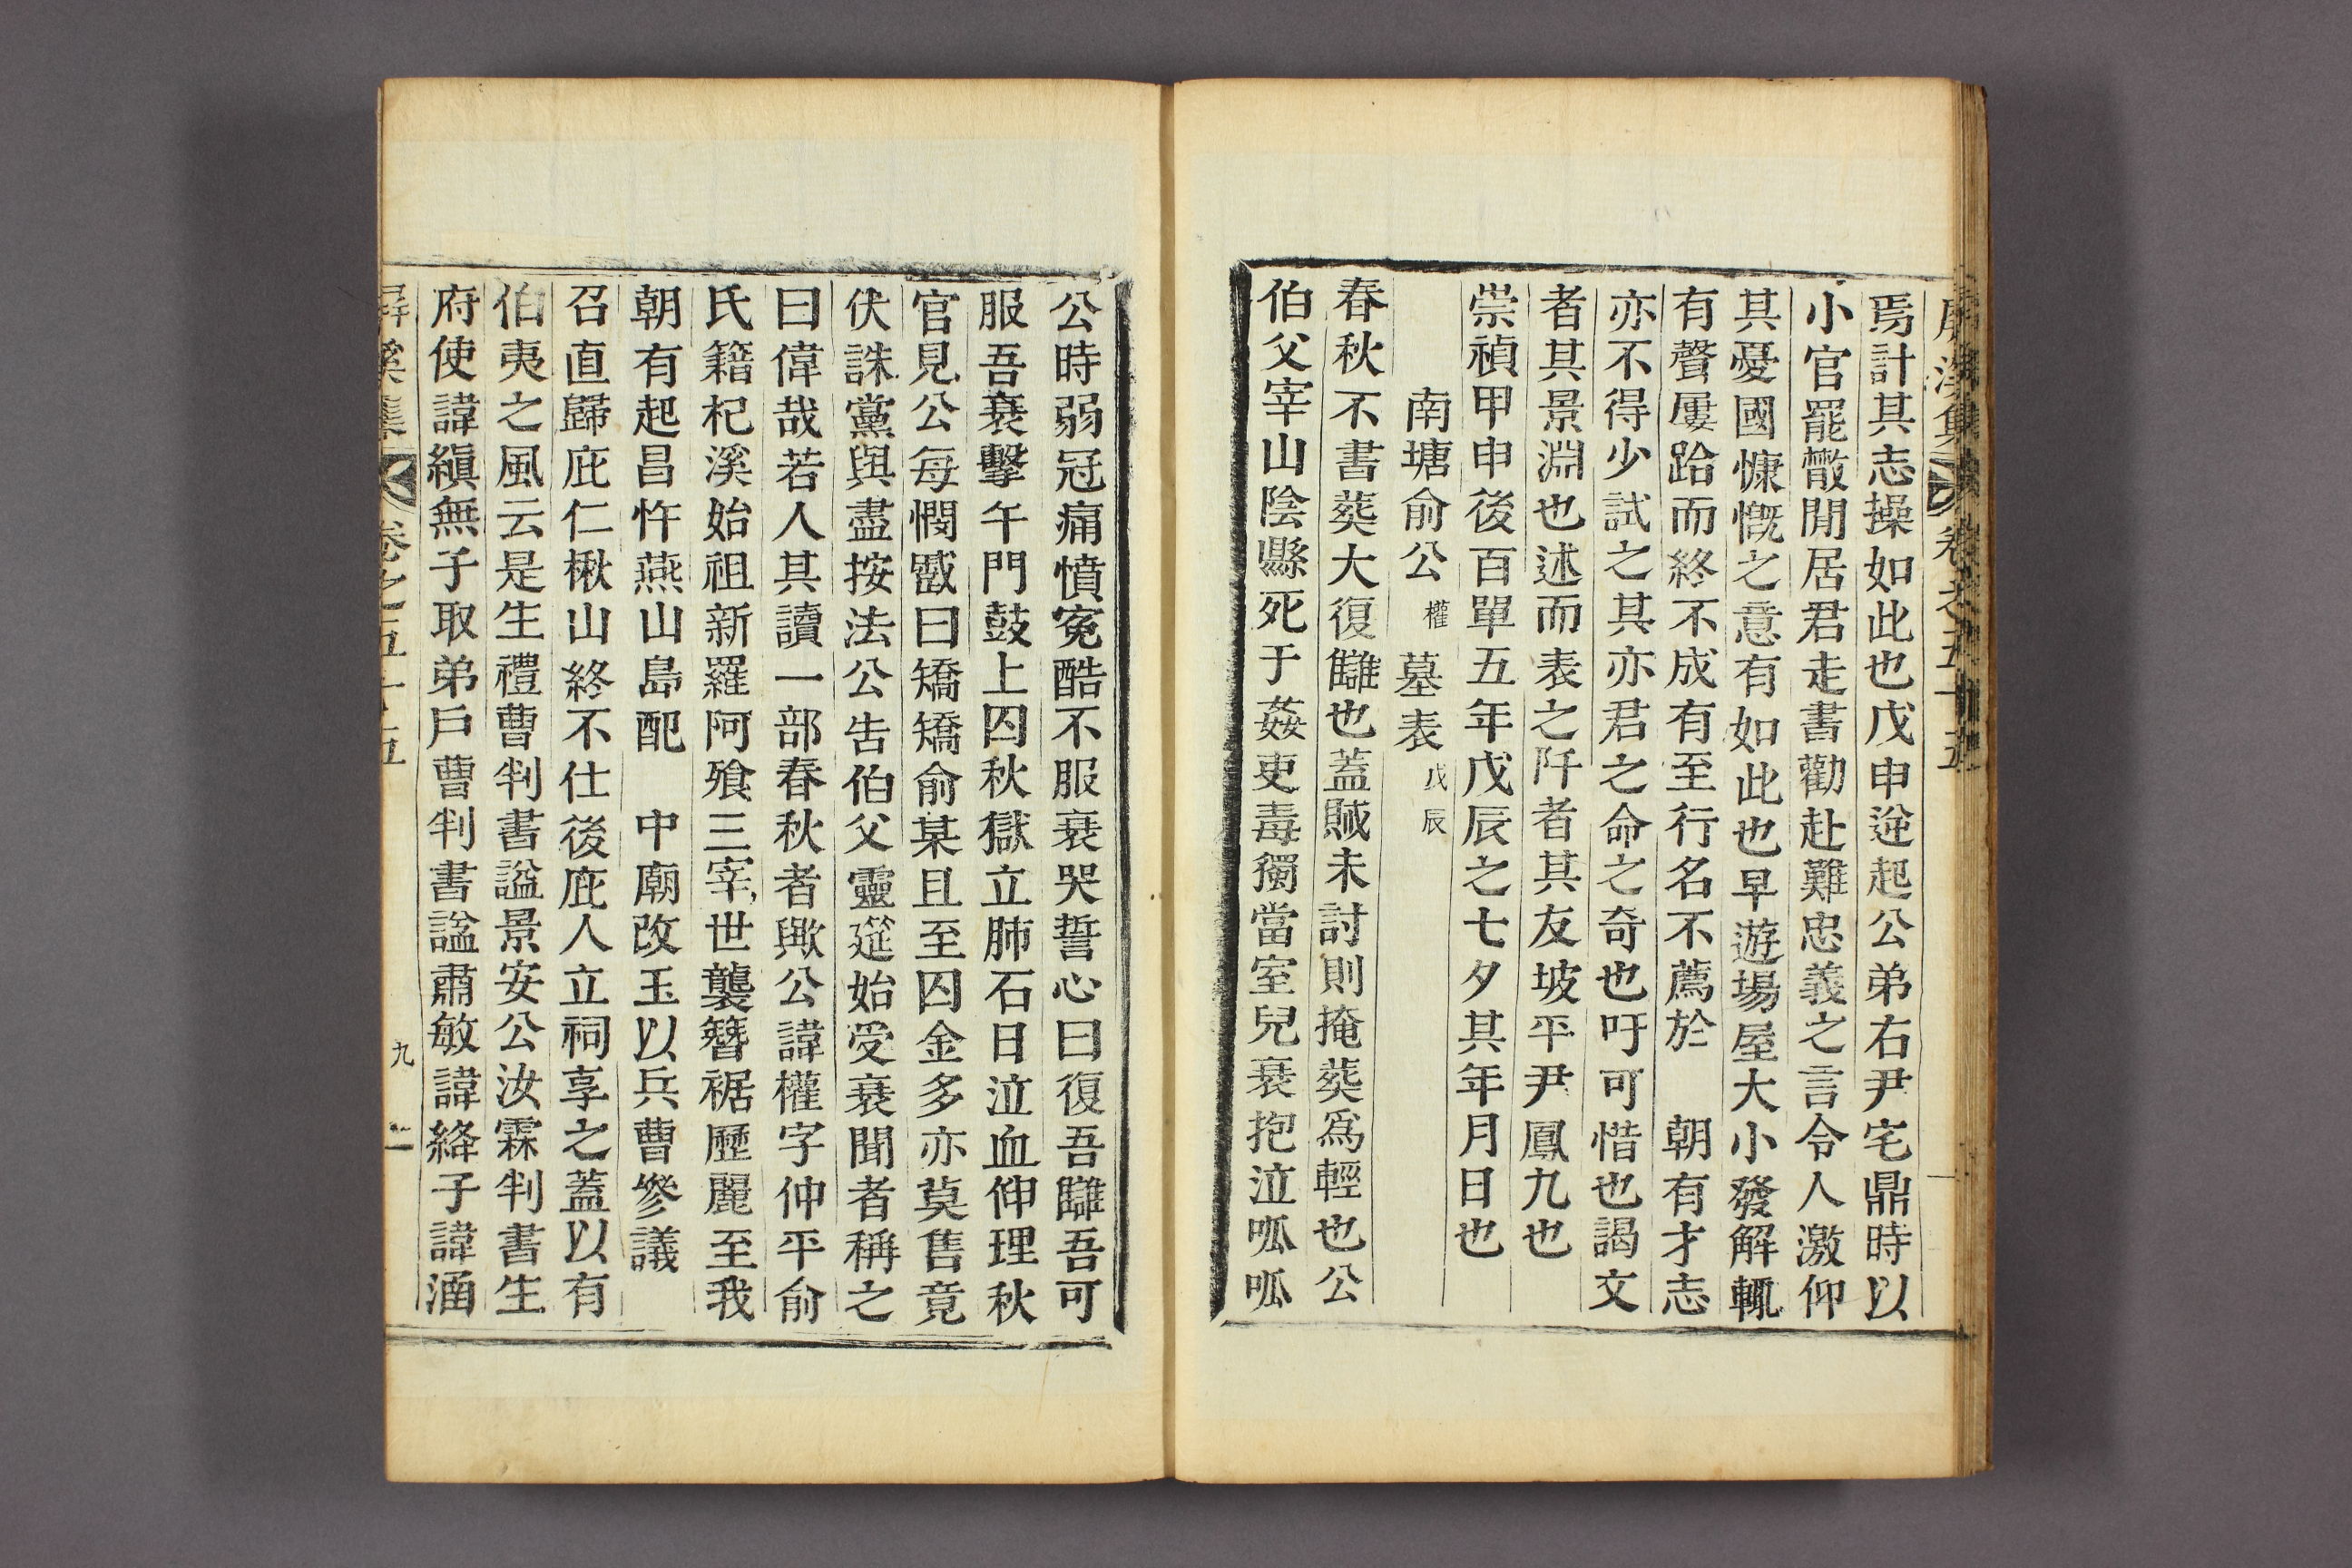 屏溪集 卷之五十五
焉計其志操如此也戊申逆起公弟右尹宅鼎時以
小官罷散閒居君走書勸赴難忠義之言令人激仰
其憂國慷慨之意有如此也早遊場屋大小發解輒
有聲屢跲而終不成有至行名不薦於 朝有才志
亦不得少試之其亦君之命之奇也吁可惜也謁文
者其景淵也述而表之阡者其友坡平尹鳳九也
崇禎甲申後百單五年戊辰之七夕其年月日也
南塘俞公 權 墓表 戊辰
春秋不書葬大復讎也蓋賊未討則掩葬爲輕也公
伯父宰山陰縣死于姦吏毒獨當室兒衰抱泣呱呱
公時弱冠痛憤寃酷不服衰哭誓心曰復吾讎吾可
服吾衰擊午門鼓上囚秋獄立肺石日泣血伸理秋
官見公每憫慼曰矯矯俞某且至囚金多亦莫售竟
伏誅黨與盡按法公告伯父靈筵始受衰聞者稱之
曰偉哉若人其讀一部春秋者歟公諱權字仲平俞
氏籍杞溪始祖新羅阿飱三宰世襲簪裾歷麗至我
朝有起昌忤燕山島配 中廟改玉以兵曹參議
召直歸庇仁楸山終不仕後庇人立祠享之蓋以有
伯夷之風云是生禮曹判書謚景安公汝霖判書生
府使諱縝無子取弟戶曹判書謚肅敏諱絳子諱涵
屏溪集 卷之五十五 九 二